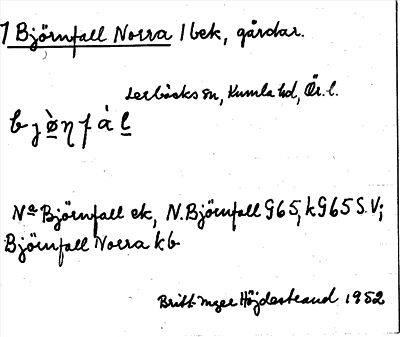 1 Björnfall Norra 1 bek, gårdar.
Lerbäcks sn, Kumla hd, Ör. l.
Na Björnfall ek, N. Björnfall G65, k G65 S.V;
Björnfall Norra kb
Britt-Inger Höjdestrand 1952